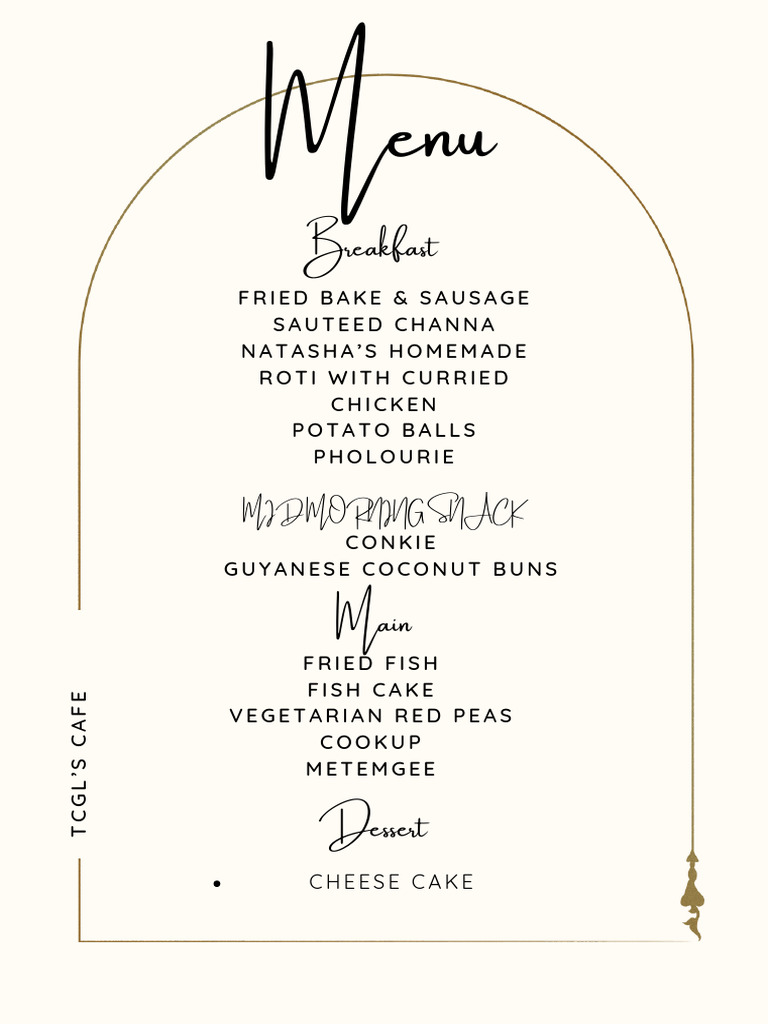 Menu
Breakfast
FRIED BAKE & SAUSAGE
SAUTEED CHANNA
NATASHA'S HOMEMADE
ROTI WITH CURRIED
CHICKEN
POTATO BALLS
PHOLOURIE
MIDMORNING SNACK
CONKIE
GUYANESE COCONUT BUNS
Main
FRIED FISH
FISH CAKE
VEGETARIAN RED PEAS
COOKUP
METEMGEE
Dessert
• CHEESE CAKE
TCGL'S CAFE